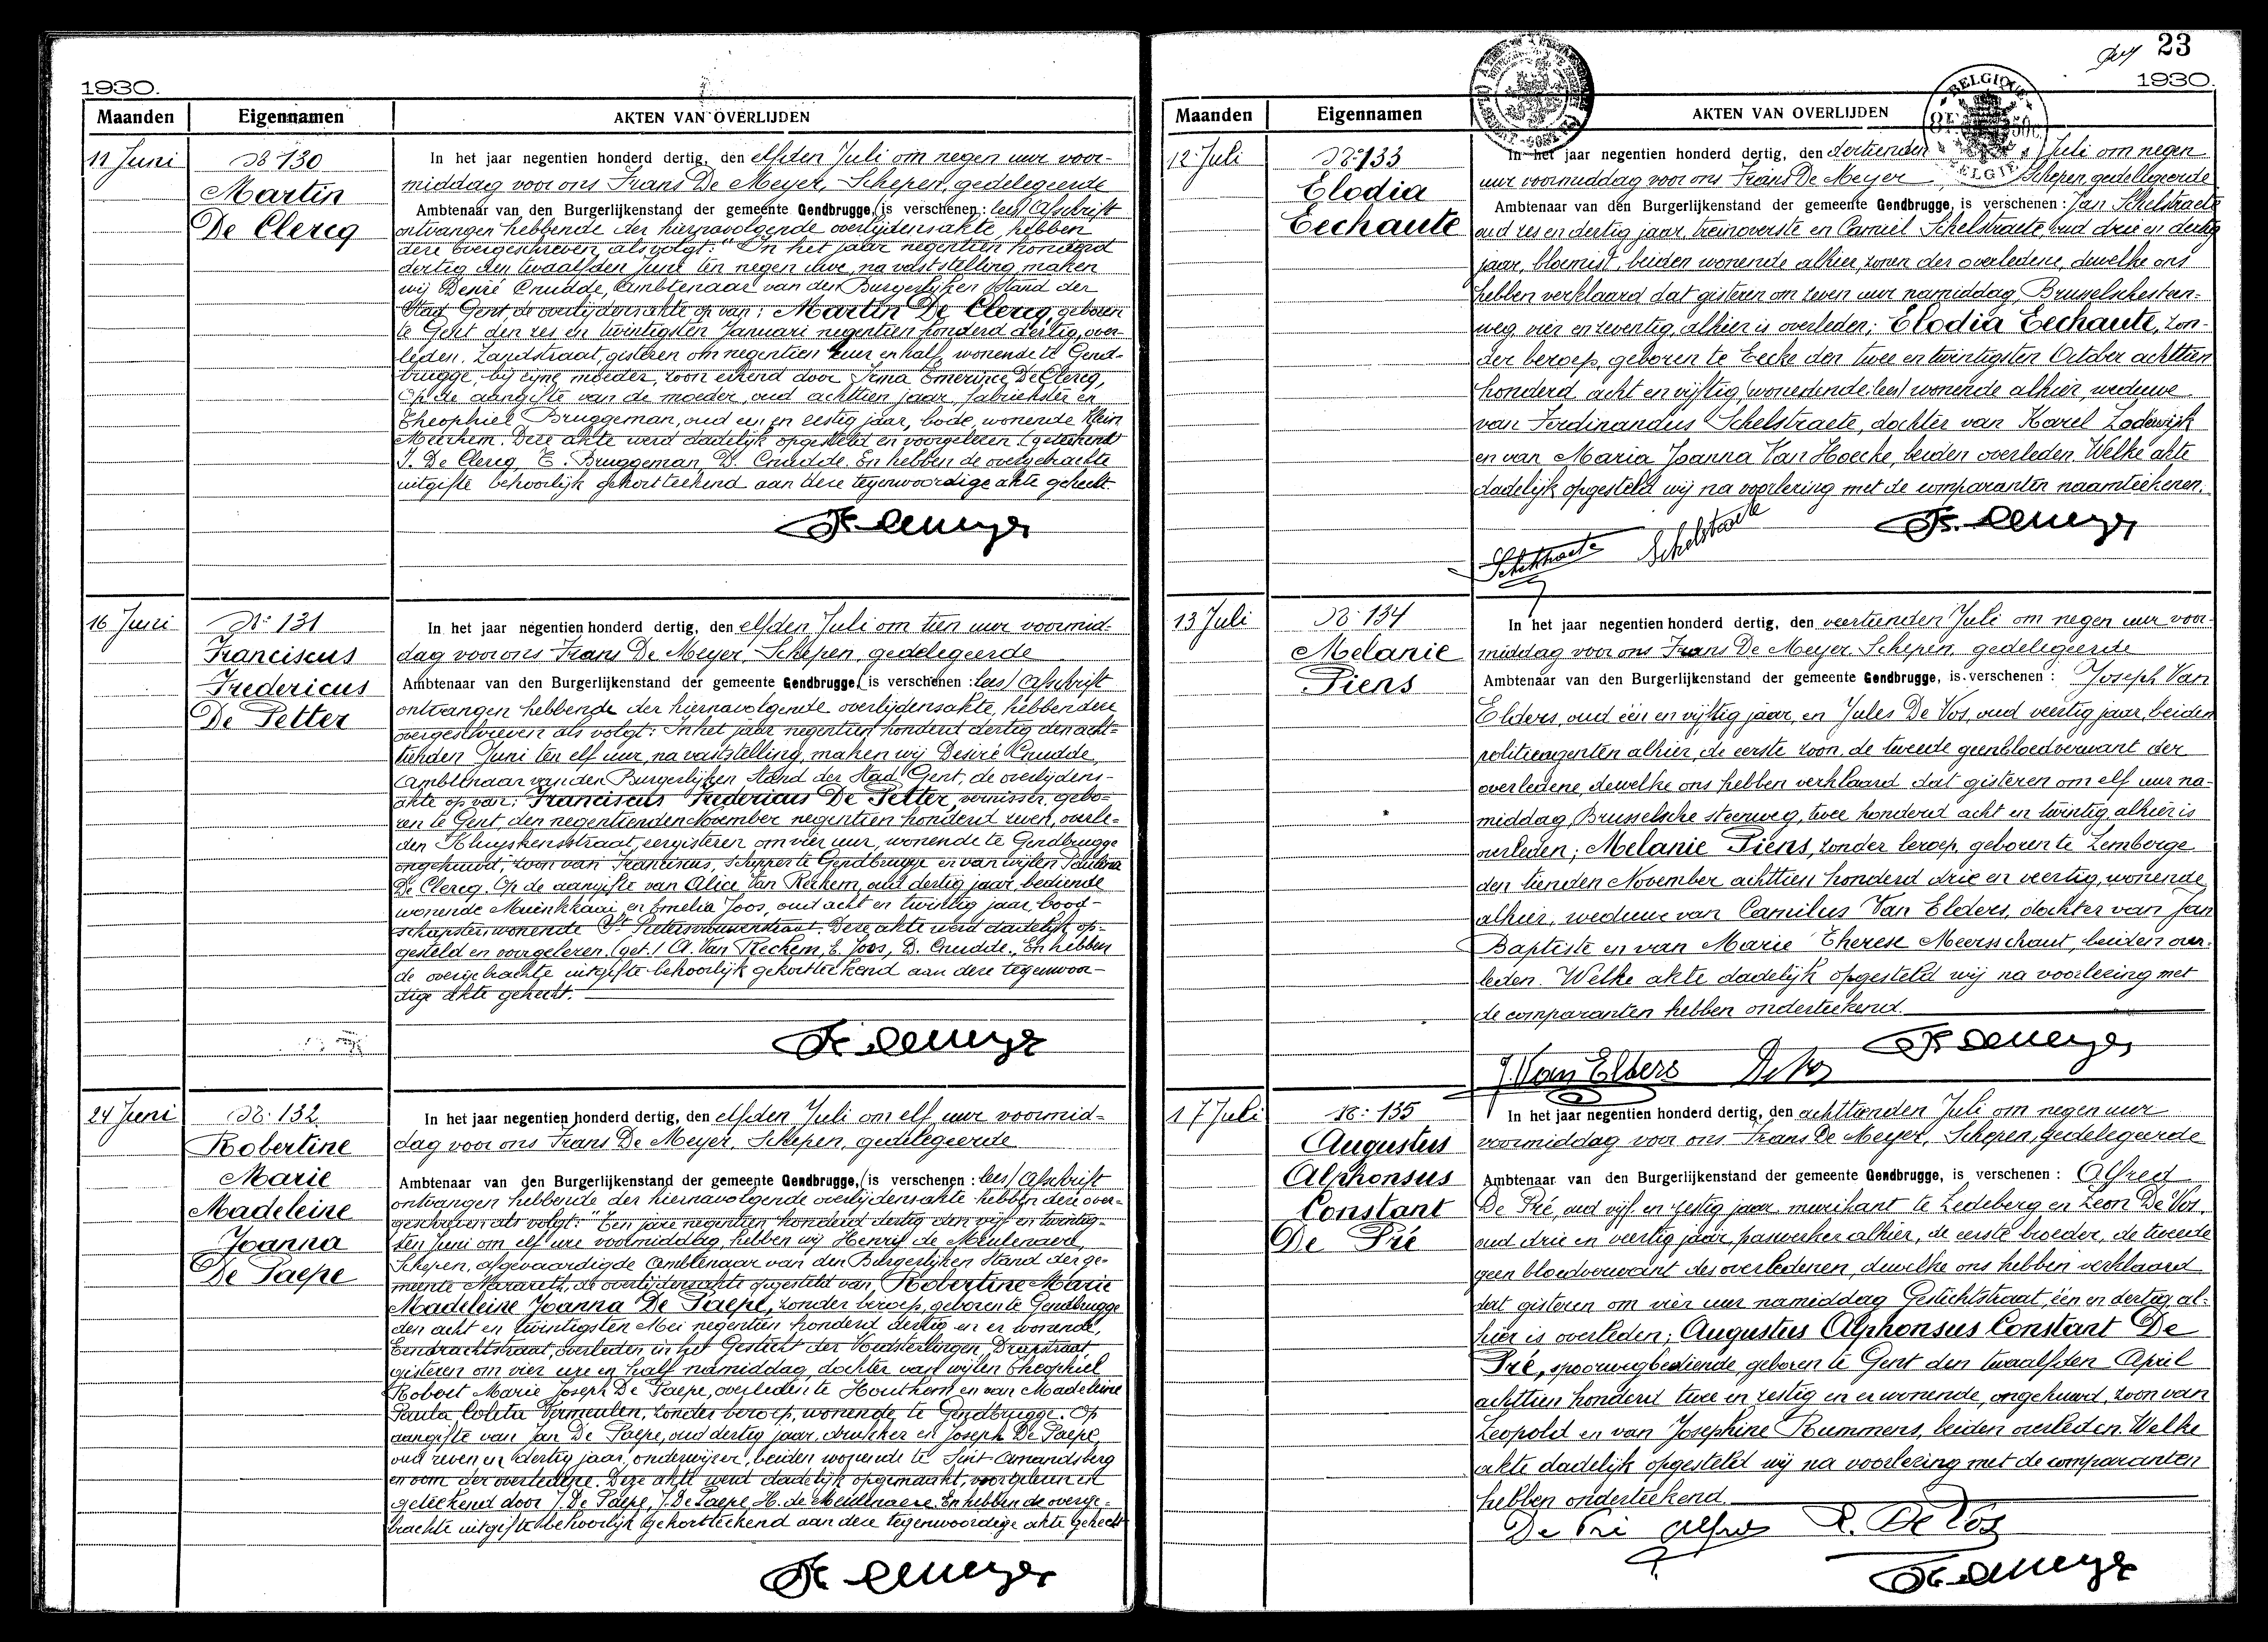 1930.
Maanden
Eigennamen
AKTEN VAN OVERLIJDEN
11 Juni
No 130
Martin
De Clercq
In het jaar negentien honderd dertig, den elfden Juli om negen uur voor-
middag voor ons Frans De Meyer, Schepen, gedelegeerde
Ambtenaar van den Burgerlijkenstand der gemeente Gendbrugge, (is verschenen: lees) Afschrift
ontvangen hebbende der hiernavolgende overlijdensakte, hebben
deze overgeschreven als volgt: "In het jaar negentien honderd
dertig den twaalfden Juni ten negen ure, na vaststelling, maken
wij Desiré Cnudde, Ambtenaar van den Burgerlijken Stand der
Stad Gent, de overlijdensakte op van: Martin De Clercq, geboren
te Gent den zes en twintigsten Januari negentien honderd dertig, over-
leden, Zandstraat, gisteren om negentien uur en half, wonende te Gend-
brugge, bij zijne moeder, zoon erkend door Irma Emerence De Clercq,
Op de aangifte van de moeder, oud achttien jaar, fabriekster en
Theophiel Bruggeman, oud een en zestig jaar, bode, wonende Klein
Meerhem. Deze akte werd dadelijk opgesteld en voorgelezen (geteekend)
I. De Clercq, T. Bruggeman, D. Cnudde. En hebben de overgebrachte
uitgifte behoorlijk gekortteekend aan deze tegenwoordige akte gehecht.
Fr. De Meyer
16 Juni
No 131
Franciscus
Fredericus
De Petter
In het jaar negentien honderd dertig, den elfden Juli om tien uur voormid-
dag voor ons Frans De Meyer, Schepen, gedelegeerde
Ambtenaar van den Burgerlijkenstand der gemeente Gendbrugge, (is verschenen: lees) Afschrift
ontvangen hebbende der hiernavolgende overlijdensakte, hebben deze
overgeschreven als volgt: In het jaar negentien honderd dertig den acht-
tienden Juni ten elf uur, na vaststelling, maken wij Desiré Cnudde,
Ambtenaar van den Burgerlijken Stand der Stad Gent, de overlijdens-
akte op van: Franciscus Fredericus De Petter, vernisser, gebo-
ren te Gent, den negentienden November negentien honderd zeven, overle-
den Kluyskensstraat, eergisteren om vier uur, wonende te Gendbrugge
ongehuwd, zoon van Franciscus, schipper te Gendbrugge en van wijlen
De Clercq. Op de aangifte van Alice Van Reckem, oud dertig jaar, bediende
wonende Muinkkaai en Emelia Joos, oud acht en twintig jaar, bood-
schapster, wonende St Pietersvrouwenstraat. Deze akte werd dadelijk op-
gesteld en voorgelezen. (get.) A. Van Reckem, E. Joos, D. Cnudde. En hebben
de overgebrachte uitgifte behoorlijk gekortteekend aan deze tegenwoor-
dige akte gehecht.
Fr. De Meyer
24 Juni
No. 132
Robertine
Marie
Madeleine
Joanna
De Paepe
In het jaar negentien honderd dertig, den elfden Juli om elf uur voormid-
dag voor ons Frans De Meyer, Schepen, gedelegeerde
Ambtenaar van den Burgerlijkenstand der gemeente Gendbrugge, (is verschenen: lees) Afschrift
ontvangen hebbende der hiernavolgende overlijdensakte hebben deze over-
geschreven als volgt: "Ten jare negentien honderd dertig den vijf en twintig-
sten Juni om elf ure voormiddag, hebben wij Henrij de Meulenaere,
Schepen, afgevaardigde Ambtenaar van den Burgerlijken Stand der ge-
meente Nazareth, de overlijdensakte opgesteld van Robertine Marie
Madeleine Joanna De Paepe, zonder beroep, geboren te Gendbrugge
den acht en twintigsten Mei negentien honderd dertig en er wonende,
Eendrachtstraat, overleden in het Gesticht der Voedsterlingen, Drapstraat,
gisteren om vier ure en half namiddag, dochter van wijlen Theophiel
Robert Marie Joseph De Paepe, overleden te Houthem en van Madeleine
Paula Coleta Vermeulen, zonder beroep, wonende te Gendbrugge. Op
aangifte van Jan De Paepe, oud dertig jaar, drukker en Joseph De Paepe,
oud zeven en dertig jaar, onderwijzer, beiden wonende te Sint-Amandsberg
en oom der overledene. Deze akte werd dadelijk opgemaakt, voorgelezen en
geteekend door J. De Paepe, J. De Paepe, H. de Meulenaere. En hebben de overge-
brachte uitgifte behoorlijk gekortteekend aan deze tegenwoordige akte gehecht
Fr. De Meyer
23
1930.
Maanden
Eigennamen
AKTEN VAN OVERLIJDEN
BELGIQUE
BELGIE
12 Juli
No. 133
Elodia
Eechaute
In het jaar negentien honderd dertig, den dertienden Juli om negen
uur voormiddag voor ons Frans De Meyer Schepen, gedelegeerde
Ambtenaar van den Burgerlijkenstand der gemeente Gendbrugge, is verschenen: Jan Schelstraete
oud zes en dertig jaar, treinoverste en Camiel Schelstraete, oud drie en dertig
jaar, bloemist, beiden wonende alhier, zonen der overledene, dewelke ons
hebben verklaard dat gisteren om zeven uur namiddag, Brusselschesteen-
weg, vier en zeventig, alhier is overleden; Elodia Eechaute, zon-
der beroep, geboren te Eecke den twee en twintigsten October achttien
honderd acht en vijftig (wonedende: lees) wonende alhier, weduwe
van Ferdinandus Schelstraete, dochter van Karel Lodewijk
en van Maria Joanna Van Hoecke, beiden overleden. Welke akte
dadelijk opgesteld wij na voorlezing met de comparanten naamteekenen.
Schelstraete
Schelstraete
Fr. De Meyer
13 Juli
No. 134
Melanie
Piens
In het jaar negentien honderd dertig, den veertienden Juli om negen uur voor-
middag voor ons Frans De Meyer Schepen, gedelegeerde
Ambtenaar van den Burgerlijkenstand der gemeente Gendbrugge, is verschenen: Joseph Van
Elders, oud één en vijftig jaar, en Jules De Vos, oud veertig jaar, beiden
politieagenten alhier, de eerste zoon, de tweede geen bloedverwant der
overledene, dewelke ons hebben verklaard dat gisteren om elf uur na-
middag, Brusselsche steenweg, twee honderd acht en twintig, alhier is
overleden; Melanie Piens, zonder beroep, geboren te Lemberge
den tienden November achttien honderd drie en veertig, wonende
alhier, weduwe van Camilus Van Elders, dochter van Jan
Baptiste en van Marie Therese Meersschaut, beiden over-
leden. Welke akte dadelijk opgesteld wij na voorlezing met
de comparanten hebben onderteekend.
J. Van Elders
De Vos
Fr. De Meyer
17 Juli
No. 135
Augustus
Alphonsus
Constant
De Pré
In het jaar negentien honderd dertig, den achttienden Juli om negen uur
voormiddag voor ons Frans De Meyer, Schepen, gedelegeerde
Ambtenaar van den Burgerlijkenstand der gemeente Gendbrugge, is verschenen: Alfred
De Pré, oud vijf en zestig jaar, muzikant te Ledeberg en Leon De Vos,
oud drie en veertig jaar, paswerker alhier, de eerste broeder, de tweede
geen bloedverwant des overledenen, dewelke ons hebben verklaard
dat gisteren om vier uur namiddag Gestichtstraat, één en dertig, al-
hier is overleden; Augustus Alphonsus Constant De
Pré, spoorwegbediende, geboren te Gent den twaalfden April
achttien honderd twee en zestig en er wonende, ongehuwd, zoon van
Leopold en van Josephine Rummens, beiden overleden. Welke
akte dadelijk opgesteld wij na voorlezing met de comparanten
hebben onderteekend
De Pré Alfred
L. De Vos
Fr. De Meyer